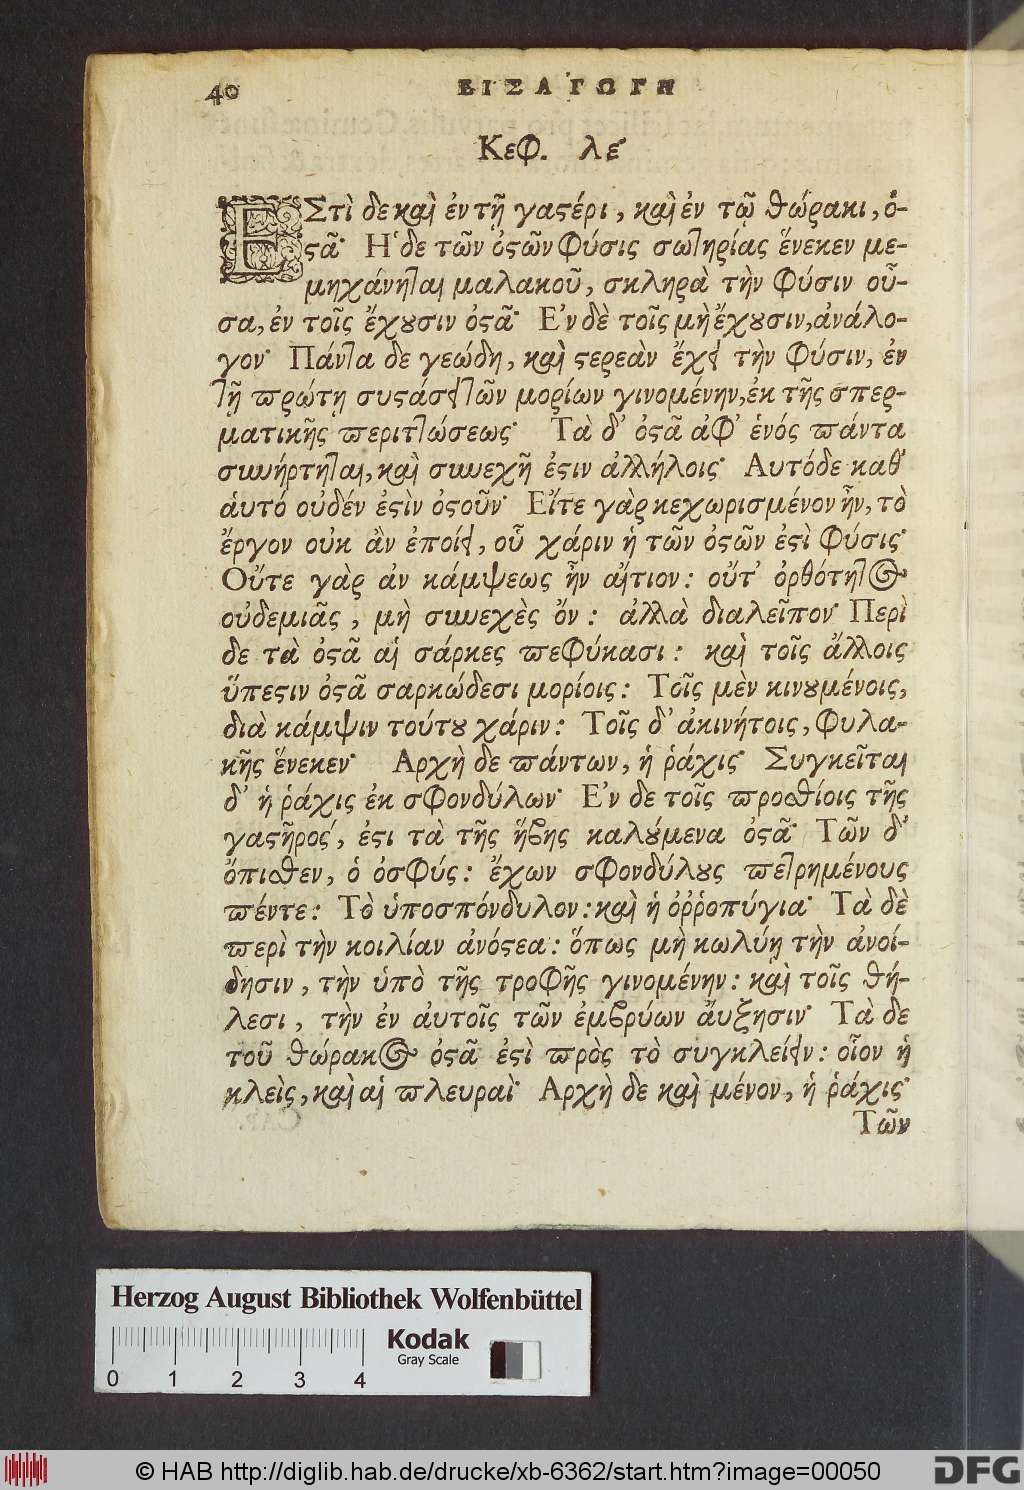 40 ΕΙΣΑΓΩΓΗ
Κεφ. λέ
ΕΣτὶ δε καὶ ἐν τῇ γαϛέρι, καὶ ἐν τῷ θώρακι, ὀ-
ϛᾶ· Η δε τῶν ὀϛῶν φύσις σωτηρίας ἕνεκεν με-
μηχάνηται μαλακοῦ, σκληρὰ τὴν φύσιν οὖ-
σα, ἐν τοῖς ἔχȣσιν ὀϛᾶ· Ε᾿ν δὲ τοῖς μὴ ἔχȣσιν, ἀνάλο-
γον· Πάντα δε γεώδη, καὶ ϛερεὰν ἔχει τὴν φύσιν, ἐν
τῇ πρώτῃ συϛάσει τῶν μορίων γινομένην, ἐκ τῆς σπερ-
ματικῆς περιττώσεως· Τὰ δ' ὀϛᾶ ἀφ' ἑνός πάντα
συνήρτηται, καὶ συνεχῆ ἐϛιν ἀλλήλοις· Αυτό δε καθ'
ἁυτό οὐδέν ἐϛὶν ὀϛοῦν· Εἴτε γὰρ κεχωρισμένον ἦν, τὸ
ἔργον οὐκ ἂν ἐποίει, οὗ χάριν ἡ τῶν ὀϛῶν ἐϛὶ φύσις·
Οὔτε γὰρ ἀν κάμψεως ἦν αἴτιον: οὔτ' ὀρθότητος
οὐδεμιᾶς, μὴ συνεχὲς ὄν: ἀλλὰ διαλεῖπον· Περὶ
δε τὰ ὀϛᾶ αἱ σάρκες πεφύκασι: καὶ τοῖς ἄλλοις
ὕπεϛιν ὀϛᾶ σαρκώδεσι μορίοις: Τοῖς μὲν κινȣμένοις,
διὰ κάμψιν τούτȣ χάριν: Τοῖς δ' ἀκινήτοις, φυλα-
κῆς ἕνεκεν· Αρχὴ δε πάντων, ἡ ῥάχις· Συγκεῖται
δ' ἡ ῥάχις ἐκ σφονδύλων· Ε᾿ν δε τοῖς προσθίοις τῆς
γαϛῆρος, ἐϛι τὰ τῆς ἥβης καλȣ́μενα ὀϛᾶ· Τῶν δ'
ὄπισθεν, ὁ ὀσφύς: ἔχων σφονδύλȣς πετρημένους
πέντε: Τὸ ὑποσπόνδυλον: καὶ ἡ ὀῤῥοπύγια· Τὰ δὲ
περὶ τὴν κοιλίαν ἀνόϛεα: ὅπως μὴ κωλύῃ τὴν ἀνοί-
δησιν, τὴν ὑπὸ τῆς τροφῆς γινομένην: καὶ τοῖς θή-
λεσι, τὴν ἐν ἀυτοῖς τῶν ἐμβρύων ἄυξησιν· Τὰ δε
τοῦ θώρακος ὀϛᾶ ἐϛὶ πρὸς τὸ συγκλείειν: οἷον ἡ
κλεὶς, καὶ αἱ πλευραὶ· Αρχὴ δε καὶ μένον, ἡ ῥάχις·
Τῶν
Herzog August Bibliothek Wolfenbüttel
Kodak
Gray Scale
0 1 2 3 4
© HAB http://diglib.hab.de/drucke/xb-6362/start.htm?image=00050
DFG